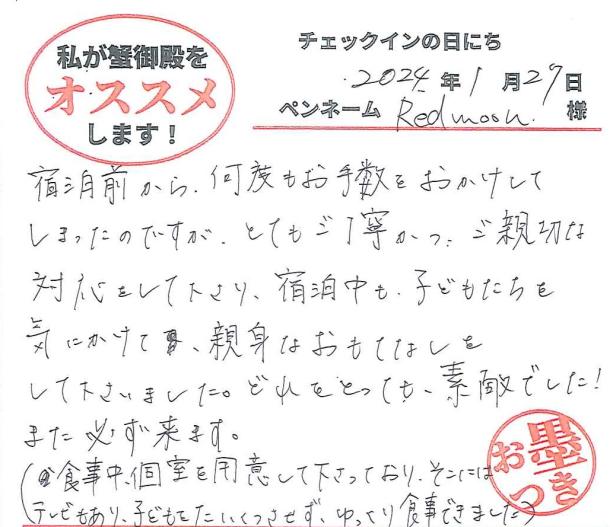 私が蟹御殿を
オススメ
します!
チェックインの日にち
2024年1月27日
ペンネーム Redmoon. 様
宿泊前から、何度もお手数をおかけして
しまったのですが、とてもご丁寧かつ、ご親切な
対応をして下さり、宿泊中も、子どもたちを
気にかけて、親身なおもてなしを
して下さいました。どれをとっても、素敵でした!
また必ず来ます。
(食事中、個室を用意して下さっており、そこには
テレビもあり、子どもをたいくつさせず、ゆっくり食事できました)
お墨つき